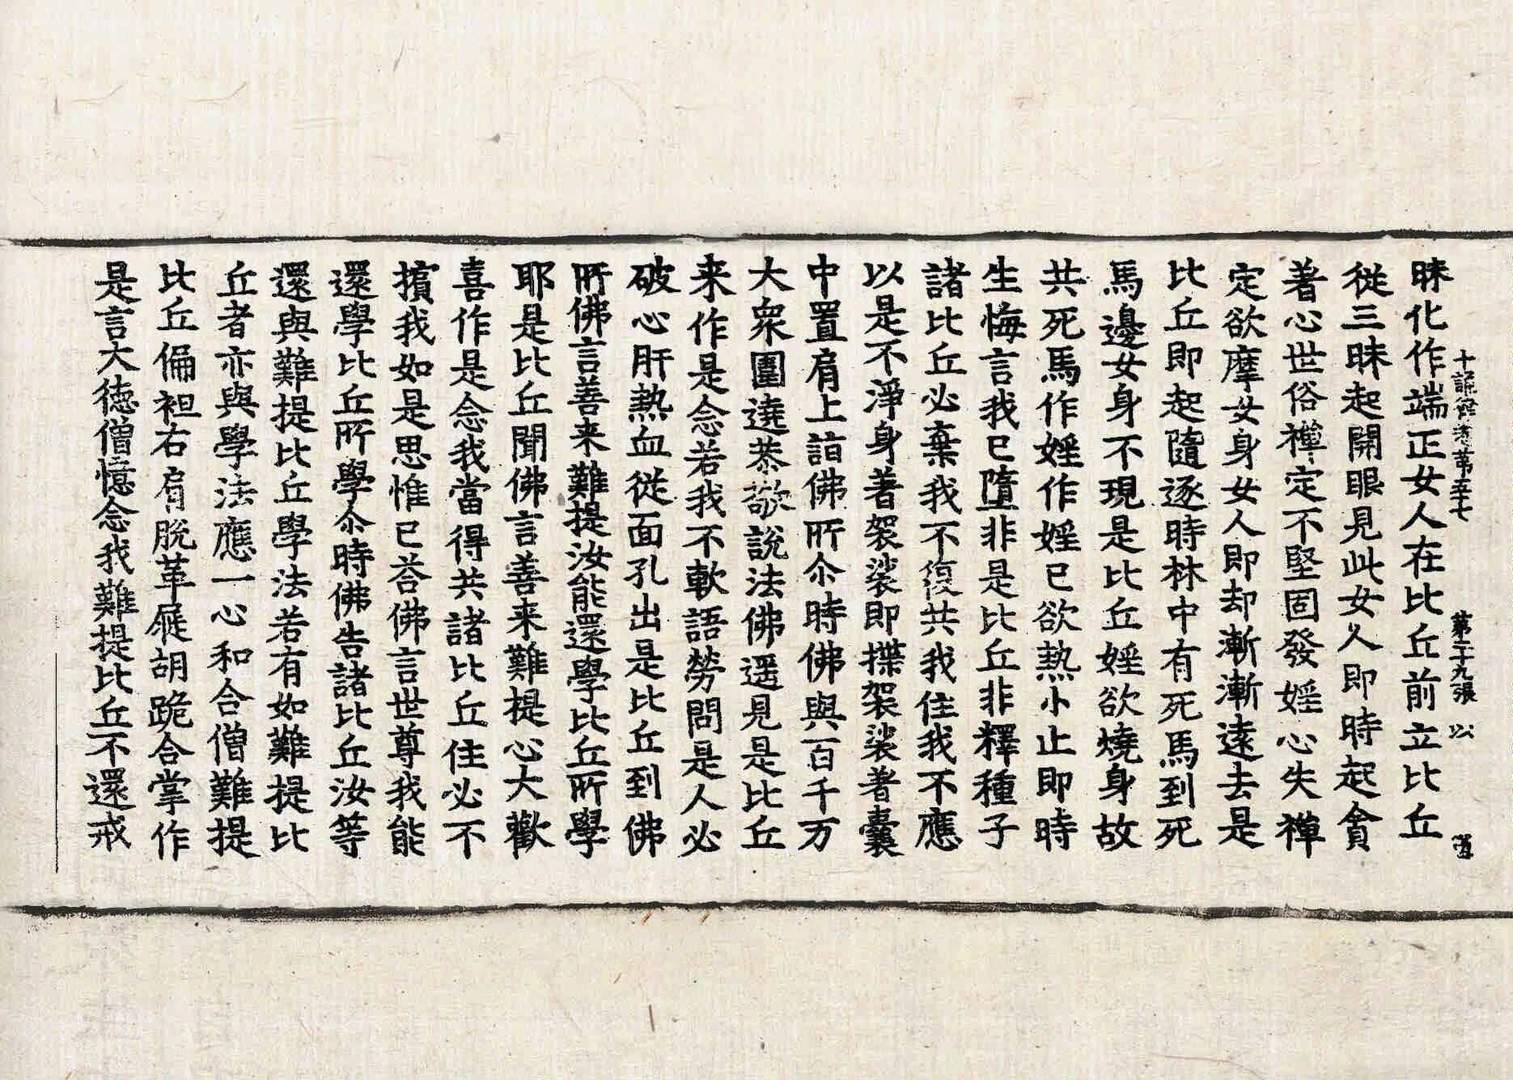 十誦律卷第五十七 第二十九張 以
昧化作端正女人在比丘前立比丘
從三昧起開眼見此女人即時起貪
著心世俗禪定不堅固發婬心失禪
定欲摩女身女人即却漸漸遠去是
比丘即起隨逐時林中有死馬到死
馬邊女身不現是比丘婬欲燒身故
共死馬作婬作婬已欲熱小止即時
生悔言我已墮非是比丘非釋種子
諸比丘必棄我不復共我住我不應
以是不淨身著袈裟即襟袈裟著囊
中置肩上詣佛所尒時佛與百千万
大衆圍遶恭敬說法佛遥見是比丘
来作是念若我不軟語勞問是人必
破心肝熱血從面孔出是比丘到佛
所佛言善来難提汝能還學比丘所學
耶是比丘聞佛言善来難提心大歡
喜作是念我當得共諸比丘住必不
擯我如是思惟已荅佛言世尊我能
還學比丘所學尒時佛告諸比丘汝等
還與難提比丘學法若有如難提比
丘者亦與學法應一心和合僧難提
比丘偏袒右肩脫革屣胡跪合掌作
是言大德僧憶念我難提比丘不還戒